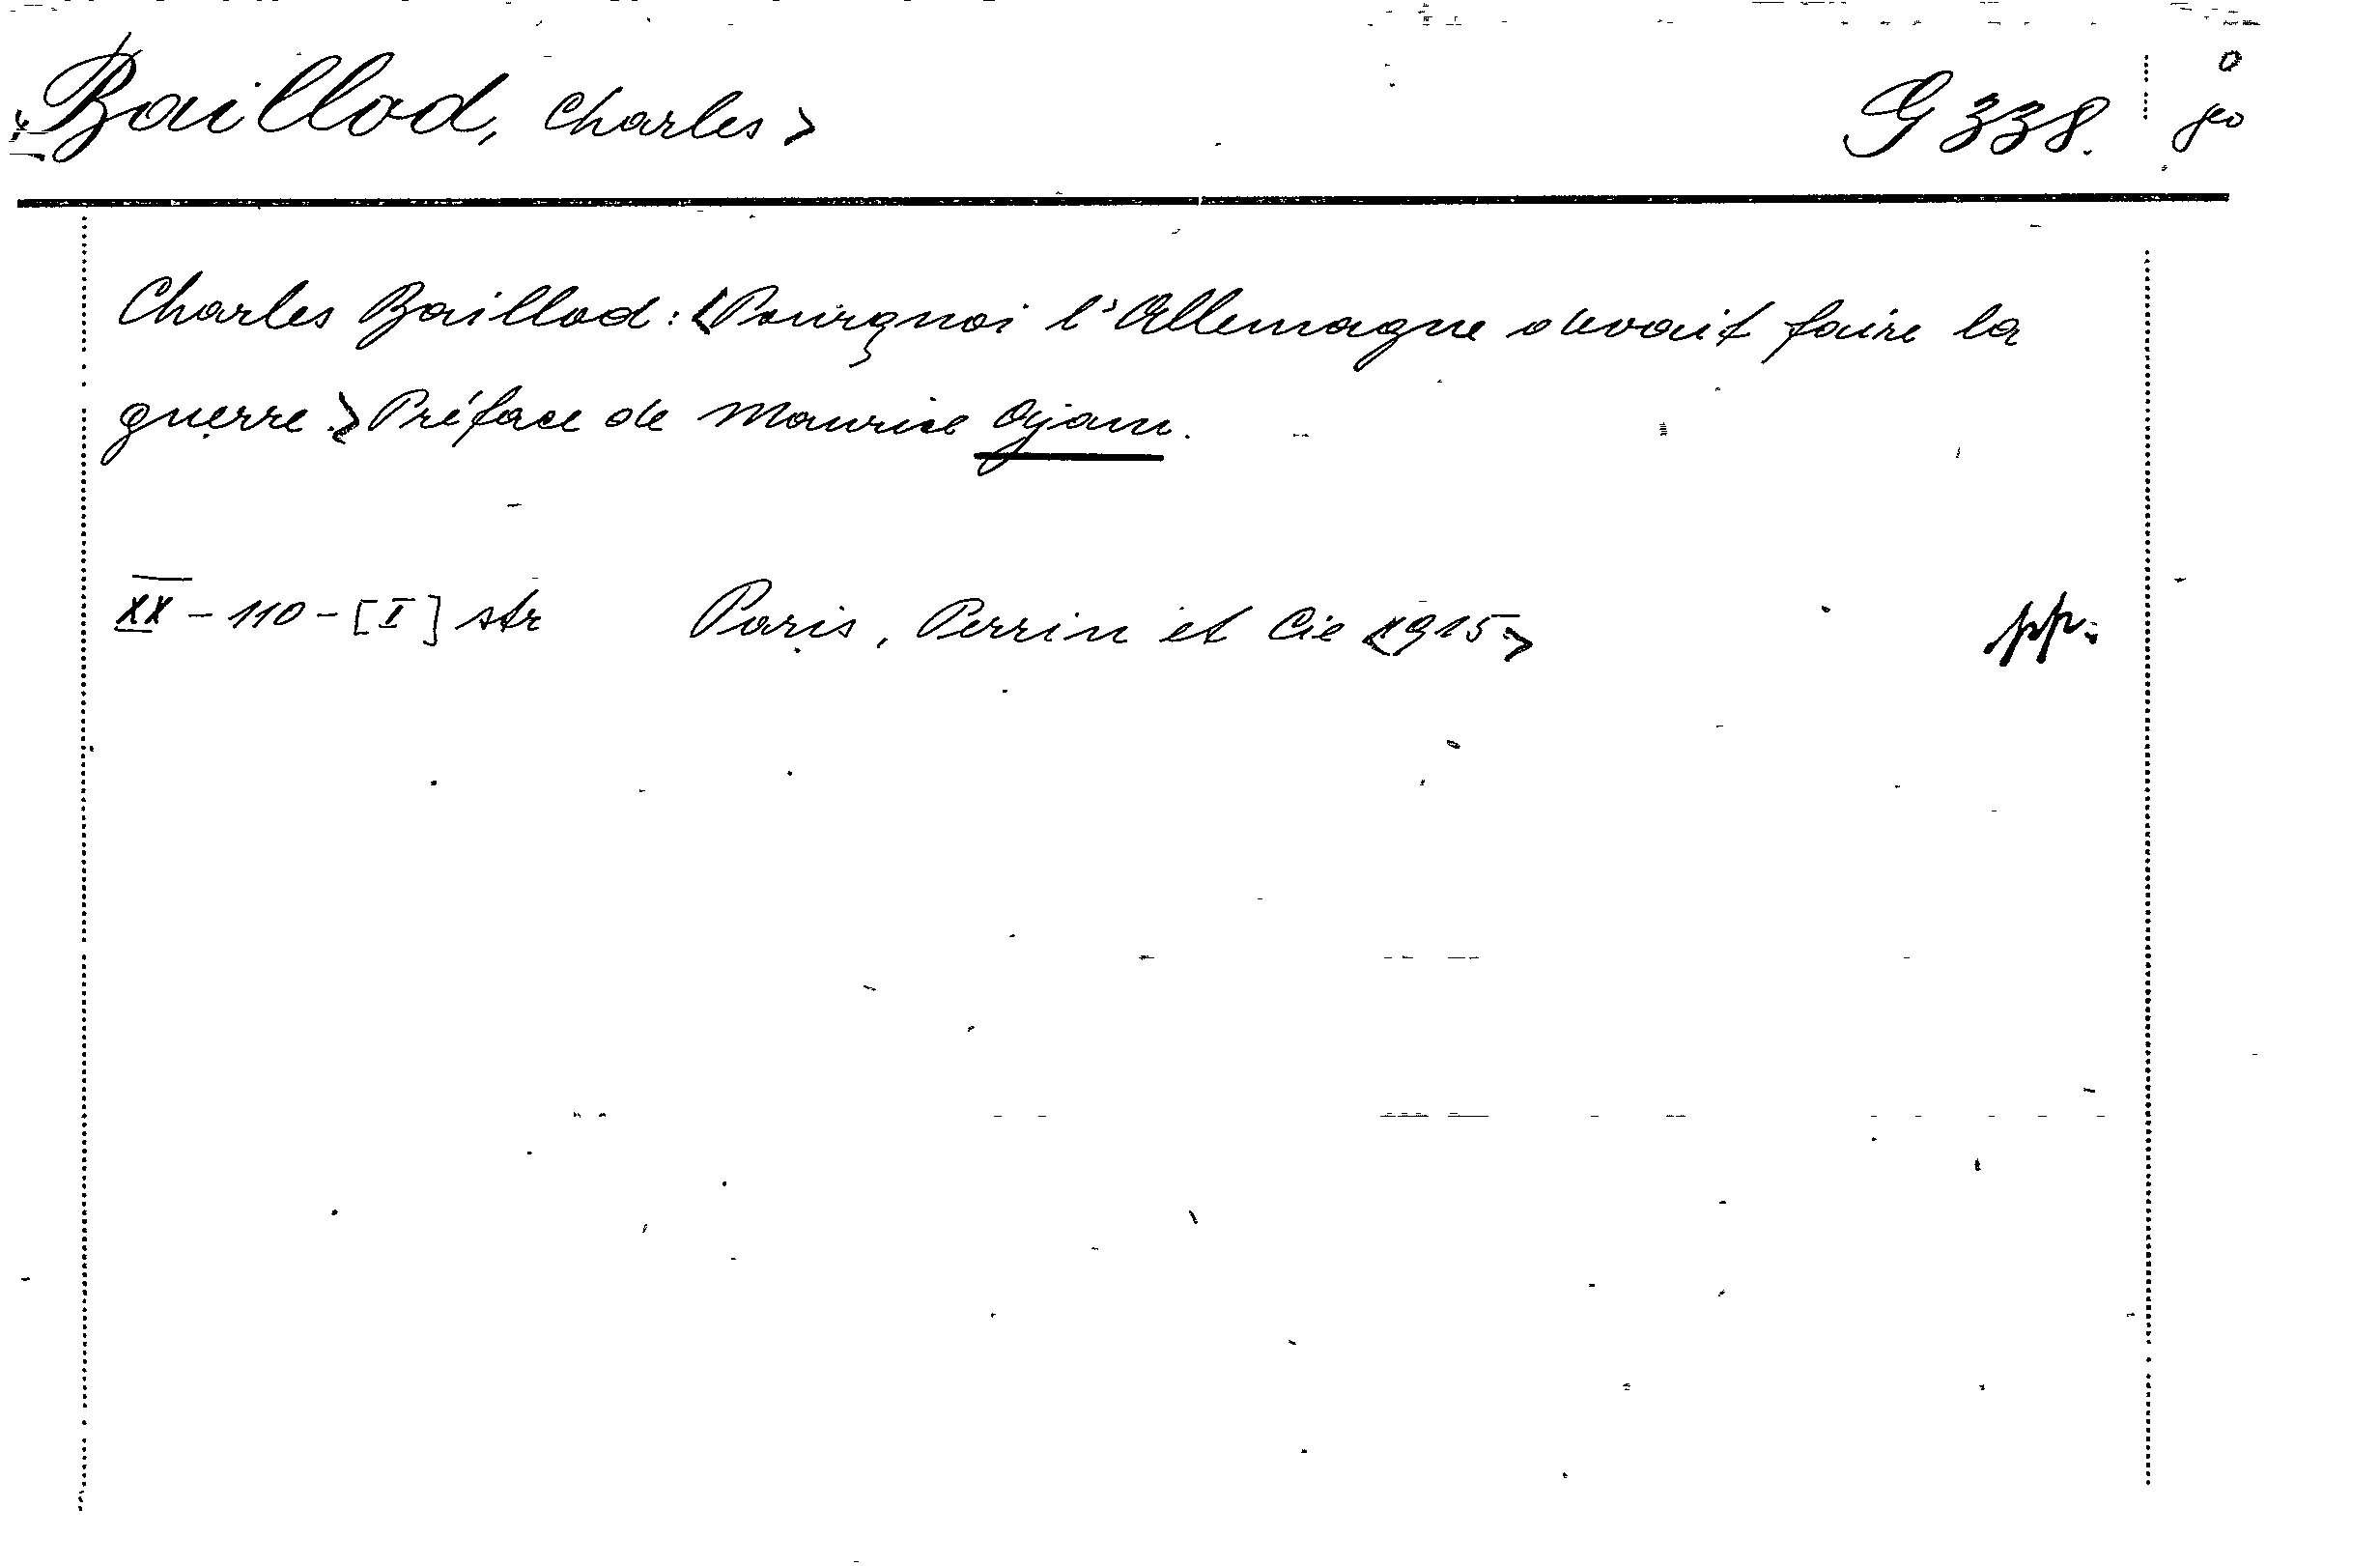 Baillod, Charles > G 338. geo
Charles Baillod: <Pourquoi l'Allemagne devait faire la
guerre.> Préface de Maurice Ajam.
XX - 110 - [I] str Paris, Perrin et Cie <1915> pp.